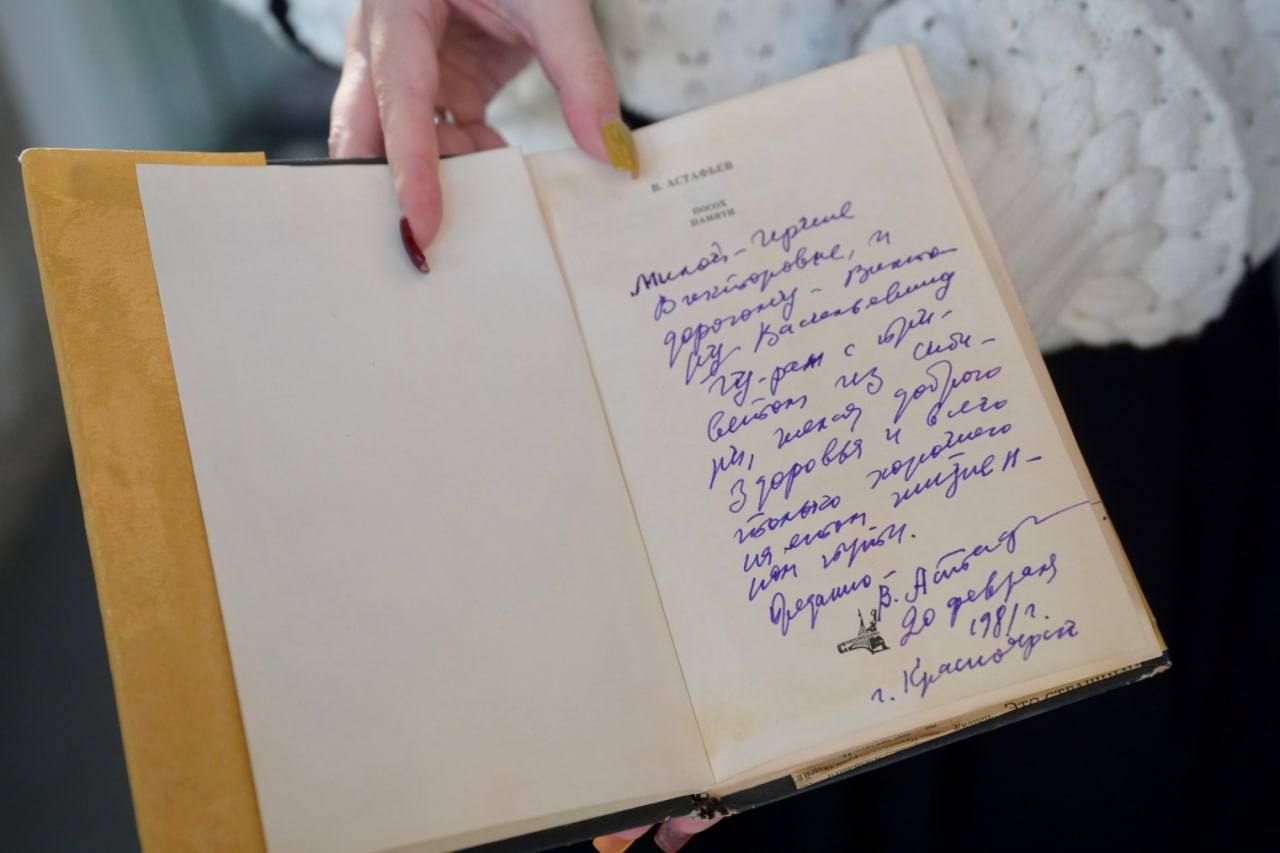 В. АСТАФЬЕВ
ПОСОХ
ПАМЯТИ
Милой – Ирине
Викторовне, и
дорогому – Викто-
ру Васильевичу
с при-
ветом из Сиби-
ри, желая доброго
здоровья и всего
только хорошего
на жизнен-
ном пути.
Преданно –
В. Астаф
20 февраля
1981 г.
г. Красноярск